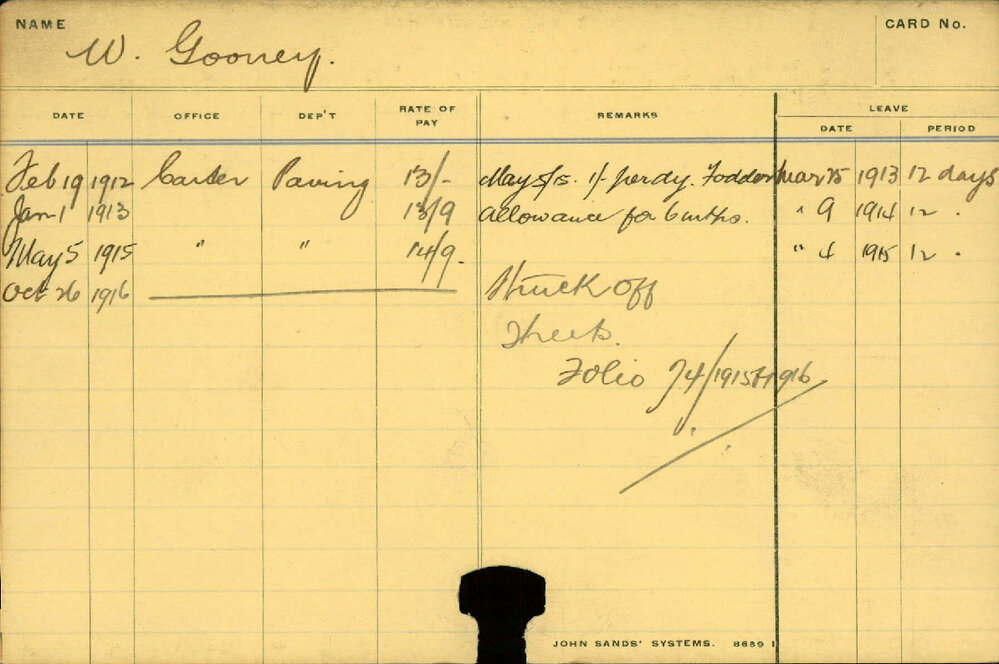 NAME W. Gooney. CARD No.
DATE OFFICE DEP'T RATE OF PAY REMARKS LEAVE
DATE PERIOD
Feb 19 1912 Carter Paving 13/- May 5/15. 1/- per dy. Fodder Mar 25 1913 12 days
Jan 1 1913 13/9 allowance for 6 mths. " 9 1914 12 "
May 5 1915 " " 14/9. " 4 1915 12 "
Oct 26 1916 Struck off
Sheets.
Folio 74/1915-1916
JOHN SANDS' SYSTEMS. 8689 1